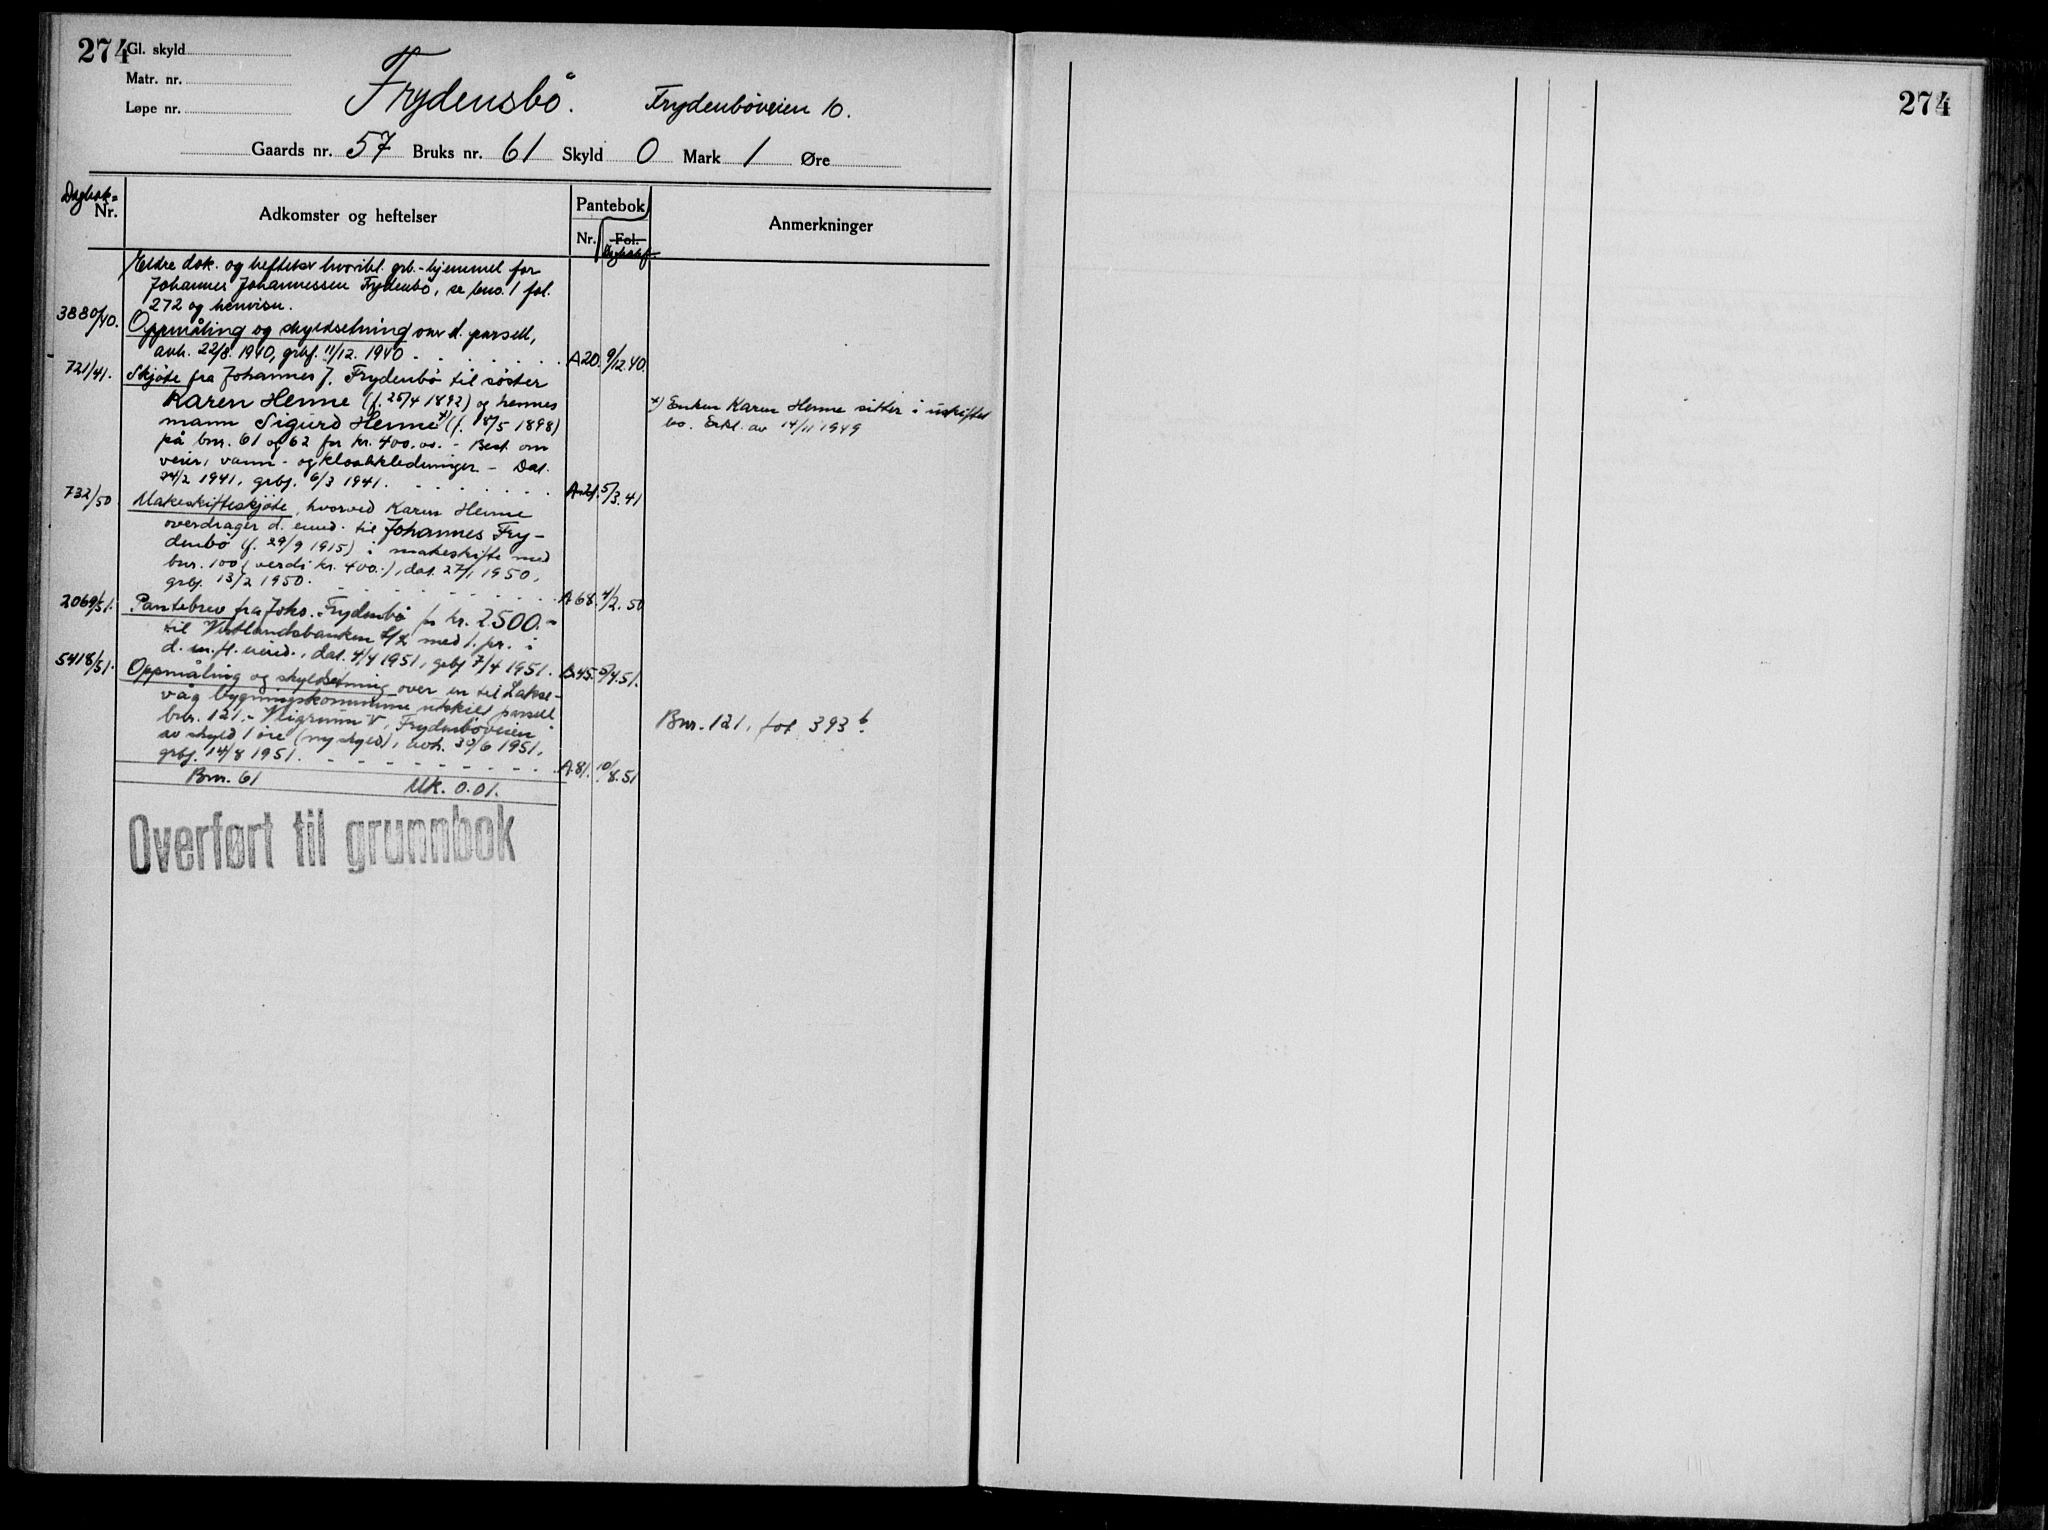 274
Gl. skyld
Matr. nr.
Løpe nr.
Frydensbö. Frydenböveien 10.
Gaards nr. 57 Bruks nr. 61 Skyld 0 Mark 1 Øre
Dagbok-
Nr.
Adkomster og heftelser
Pantebok
Nr. Fol.
Anmerkninger
Eldre dok. og heftelser hvoribl. grb.-hjemmel for
Johannes Johannessen Frydenbö, se bno. 1 fol.
272 og henvisn.
3880/40. Oppmåling og skyldsetning over d. parsell,
avh. 22/8. 1940, grbf. 11/12. 1940 A20. 9/12.40.
721/41. Skjöte fra Johannes J. Frydenbö til söster
Karen Henne (f. 25/4 1892) og hennes
mann Sigurd Henne x) (f. 18/5 1898)
på bnr. 61 og 62 for kr. 400.00. - Best. om
veier, vann- og kloakkledninger. - Dat.
24/2 1941, grbf. 6/3 1941. A21. 5/3.41
x) Enken Karen Henne sitter i uskiftet
bo. Erkl. av 14/11 1949
732/50 Makeskifteskjöte, hvorved Karen Henne
overdrager d. eiend. til Johannes Fry-
denbö (f. 29/9 1915) i makeskifte med
bnr. 100 (verdi kr. 400.-), dat. 27/1 1950,
grbf. 13/2 1950. A68. 4/2.50
2069/51. Pantebrev fra Johs. Frydenbö for kr. 2500.-
til Vestlandsbanken A/L med 1. pr. i
d. m. fl. eiend., dat. 4/4 1951, grbf 7/4 1951. B45. 5/4.51.
5418/51. Oppmåling og skyldsetning over en til Lakse-
våg bygningskommune utskilt parsell
bnr. 121. - Veigrunn V, Frydenböveien
av skyld 1 öre (ny skyld), avh. 30/6 1951,
grbf. 14/8 1951. A.81. 10/8.51
Bnr. 121, fol 393 b.
Bnr. 61 Mk. 0.01.
Overført til grunnbok
274